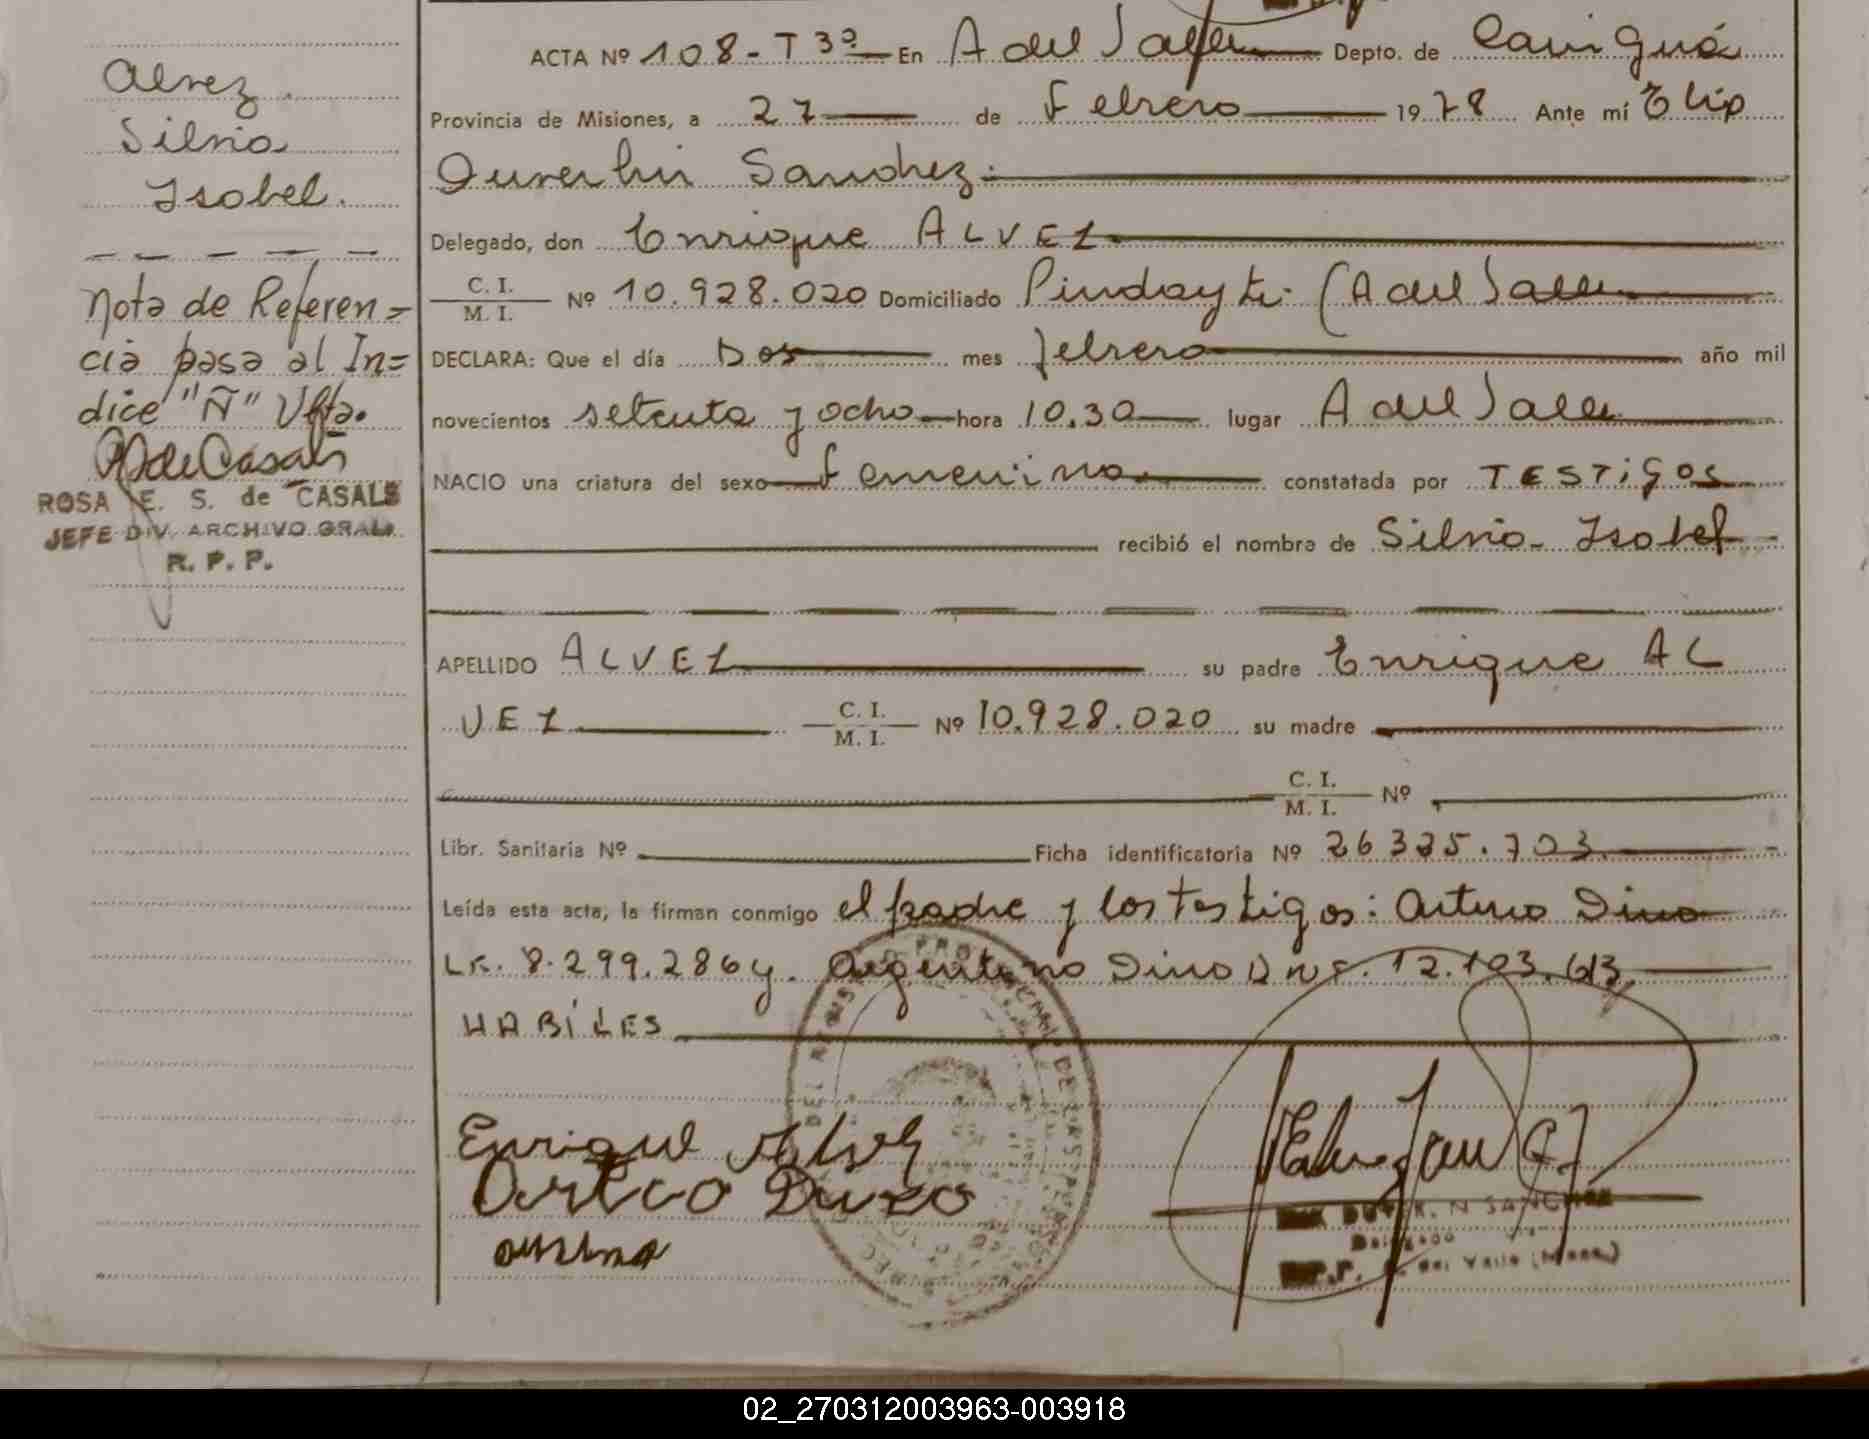 Alvez
Silvia
Isabel.
Nota de Referen=
cia pasa al In=
dice "Ñ" Vlta.
RdeCasals
ROSA E. S. de CASALS
JEFE DIV. ARCHIVO GRAL.
R. P. P.
ACTA Nº 108-T3º En A del Valle Depto. de Cainguá
Provincia de Misiones, a 27 de Febrero 1978 Ante mí Elip
Duverlin Sanchez.
Delegado, don Enrique ALVEZ
C. I.
M. I. Nº 10.928.020 Domiciliado Pindayti (A del Valle
DECLARA: Que el día Dos mes febrero año mil
novecientos setenta y ocho hora 10.30 lugar A del Valle
NACIO una criatura del sexo Femenino constatada por TESTIGOS
recibió el nombre de Silvia Isabel
APELLIDO ALVEZ su padre Enrique AL
VEZ C. I.
M. I. Nº 10.928.020 su madre
C. I.
M. I. Nº
Libr. Sanitaria Nº Ficha identificatoria Nº 26325.703
Leída esta acta, la firman conmigo el padre y los testigos: Arturo Dino
LE. 8.299.286 y. Argentino Dino DNI. 12.103.613,
HABILES
Enrique Alvez
N SANCHEZ
Delegado
R.P.P. A. del Valle (Mnes.)
02_270312003963-003918